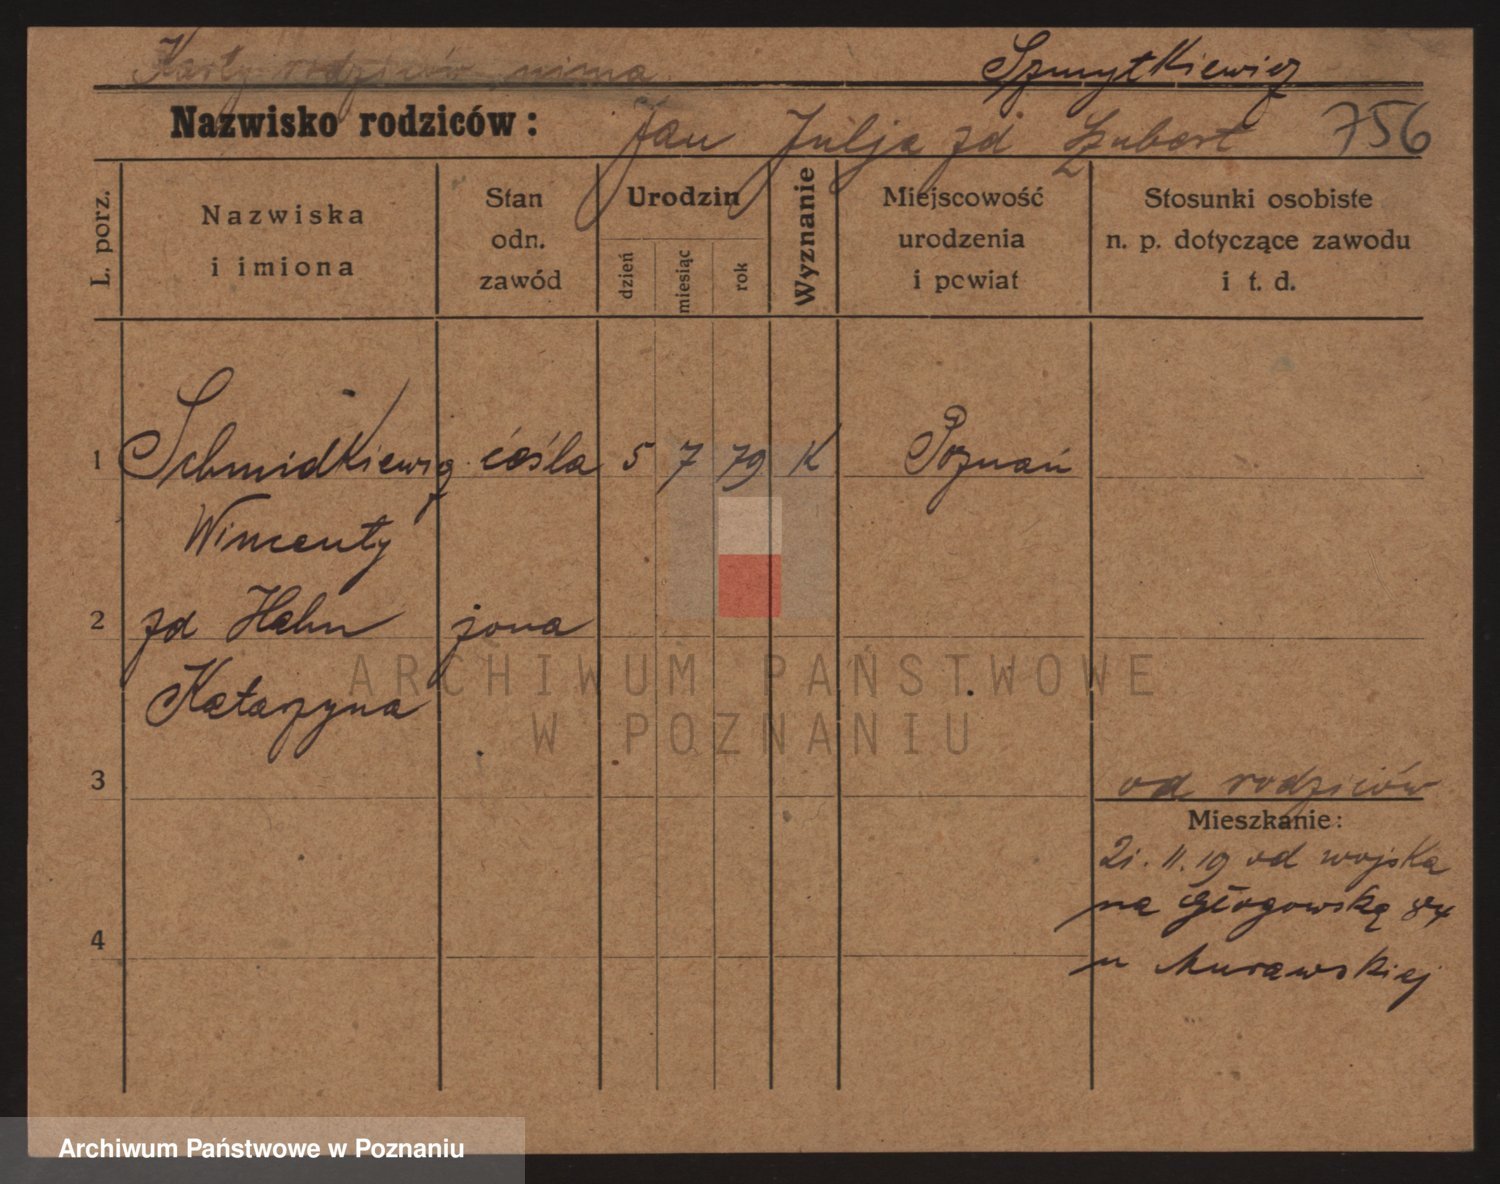 Karty rodziców nima
Szmytkiewicz
Nazwisko rodziców: Jan Julja zd Szubert 756
L. porz.
Nazwiska
i imiona
Stan
odn.
zawód
Urodzin
dzień
miesiąc
rok
Wyznanie
Miejscowość
urodzenia
i powiat
Stosunki osobiste
n. p. dotyczące zawodu
i t. d.
1 Schmidkiewicz cieśla 5 7 79 K Poznań
Wincenty
2 zd Hahn żona
Katarzyna
ARCHIWUM PAŃSTWOWE
W POZNANIU
3
od rodziców
Mieszkanie:
21. 11. 19 od wojska
na Głogowską 84
4
u Murawskiej
Archiwum Państwowe w Poznaniu